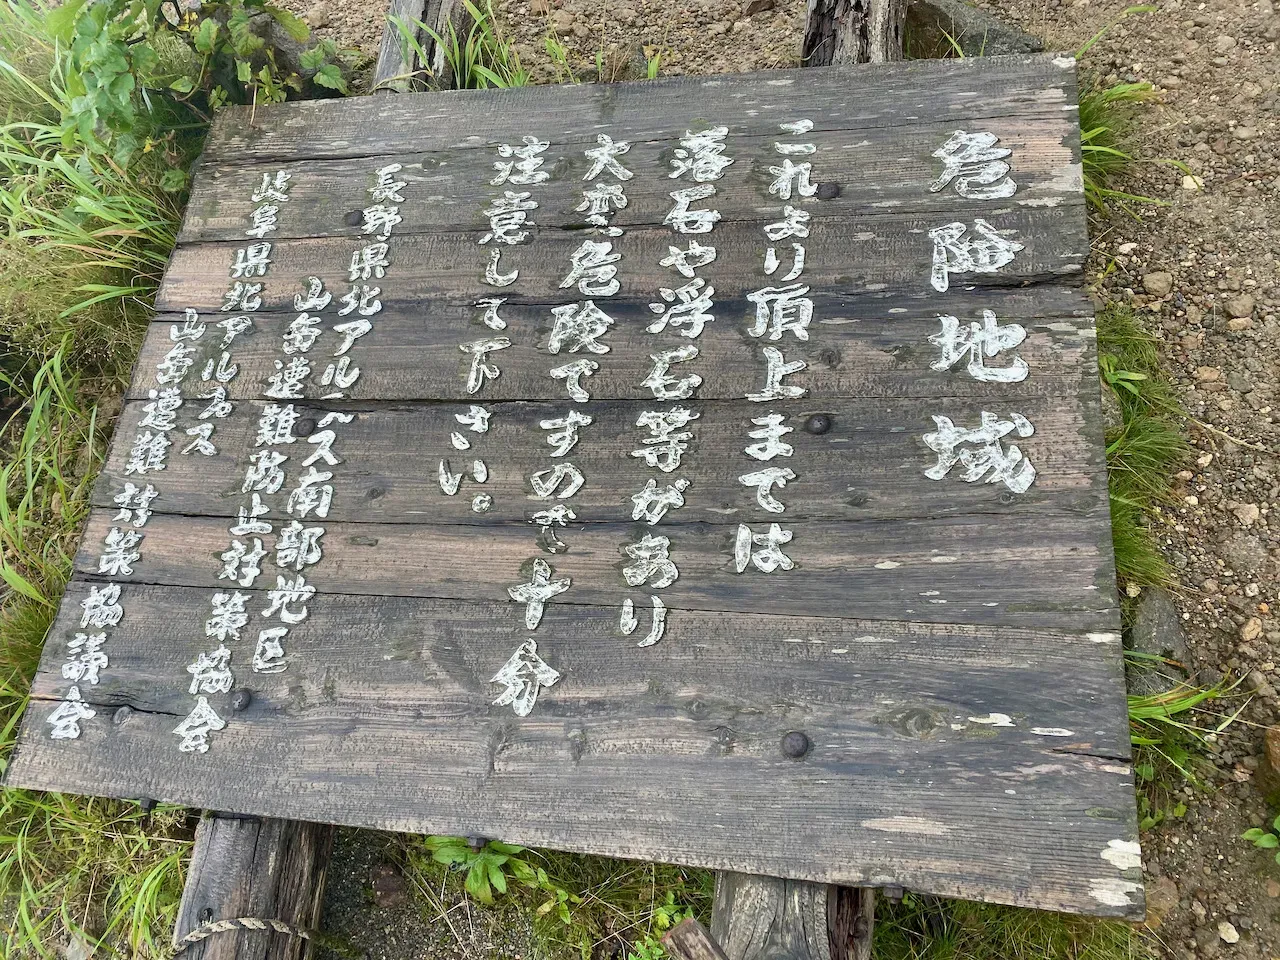 危険地域
これより頂上までは
落石や浮石等があり
大変危険ですので十分
注意して下さい。
長野県北アルプス南部地区
山岳遭難防止対策協会
岐阜県北アルプス
山岳遭難対策協議会